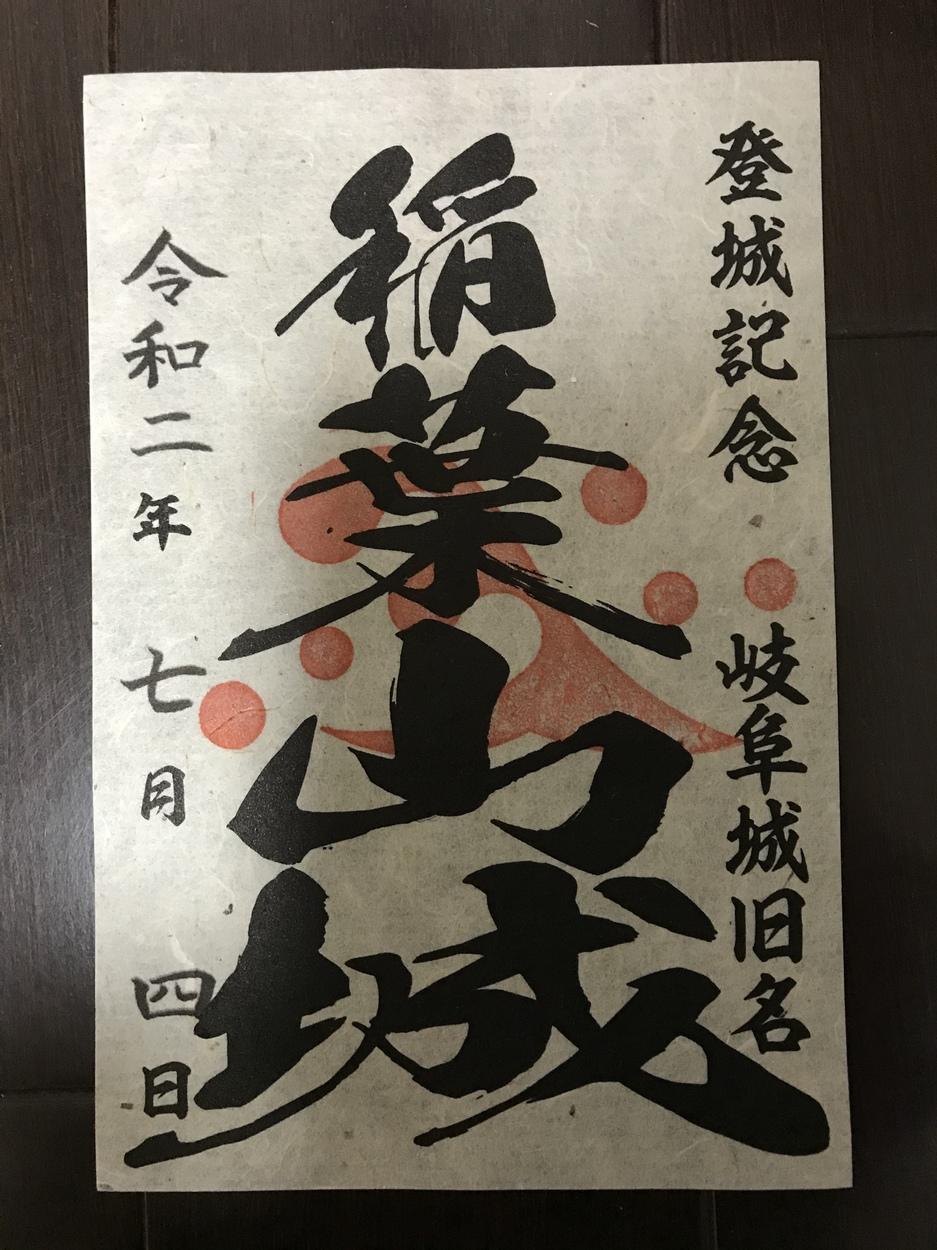 登城記念 岐阜城旧名
稲葉山城
令和二年 七月 四日